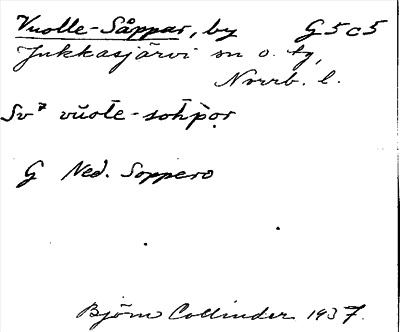 Vuolle-Såppar, by G5c5
Jukkasjärvi sn o. tg,
Norrb. l.
Sv⁷ vŭołe-sòhpọr
G Ned. Soppero
Björn Collinder 1937.